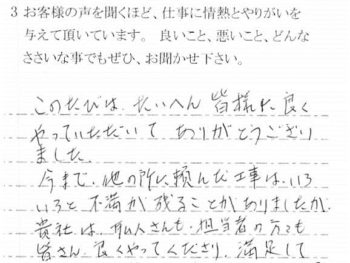 3 お客様の声を聞くほど、仕事に情熱とやりがいを
与えて頂いています。 良いこと、悪いこと、どんな
ささいな事でもぜひ、お聞かせ下さい。
このたびは、たいへん 皆様に良く
やっていただいて ありがとうござり
ました。
今まで、他の所に頼んだ工事は、いろ
いろと 不満が残ることがありましたが、
貴社は、職人さんも、担当者の方も
皆さん、良くやってくださり、満足して